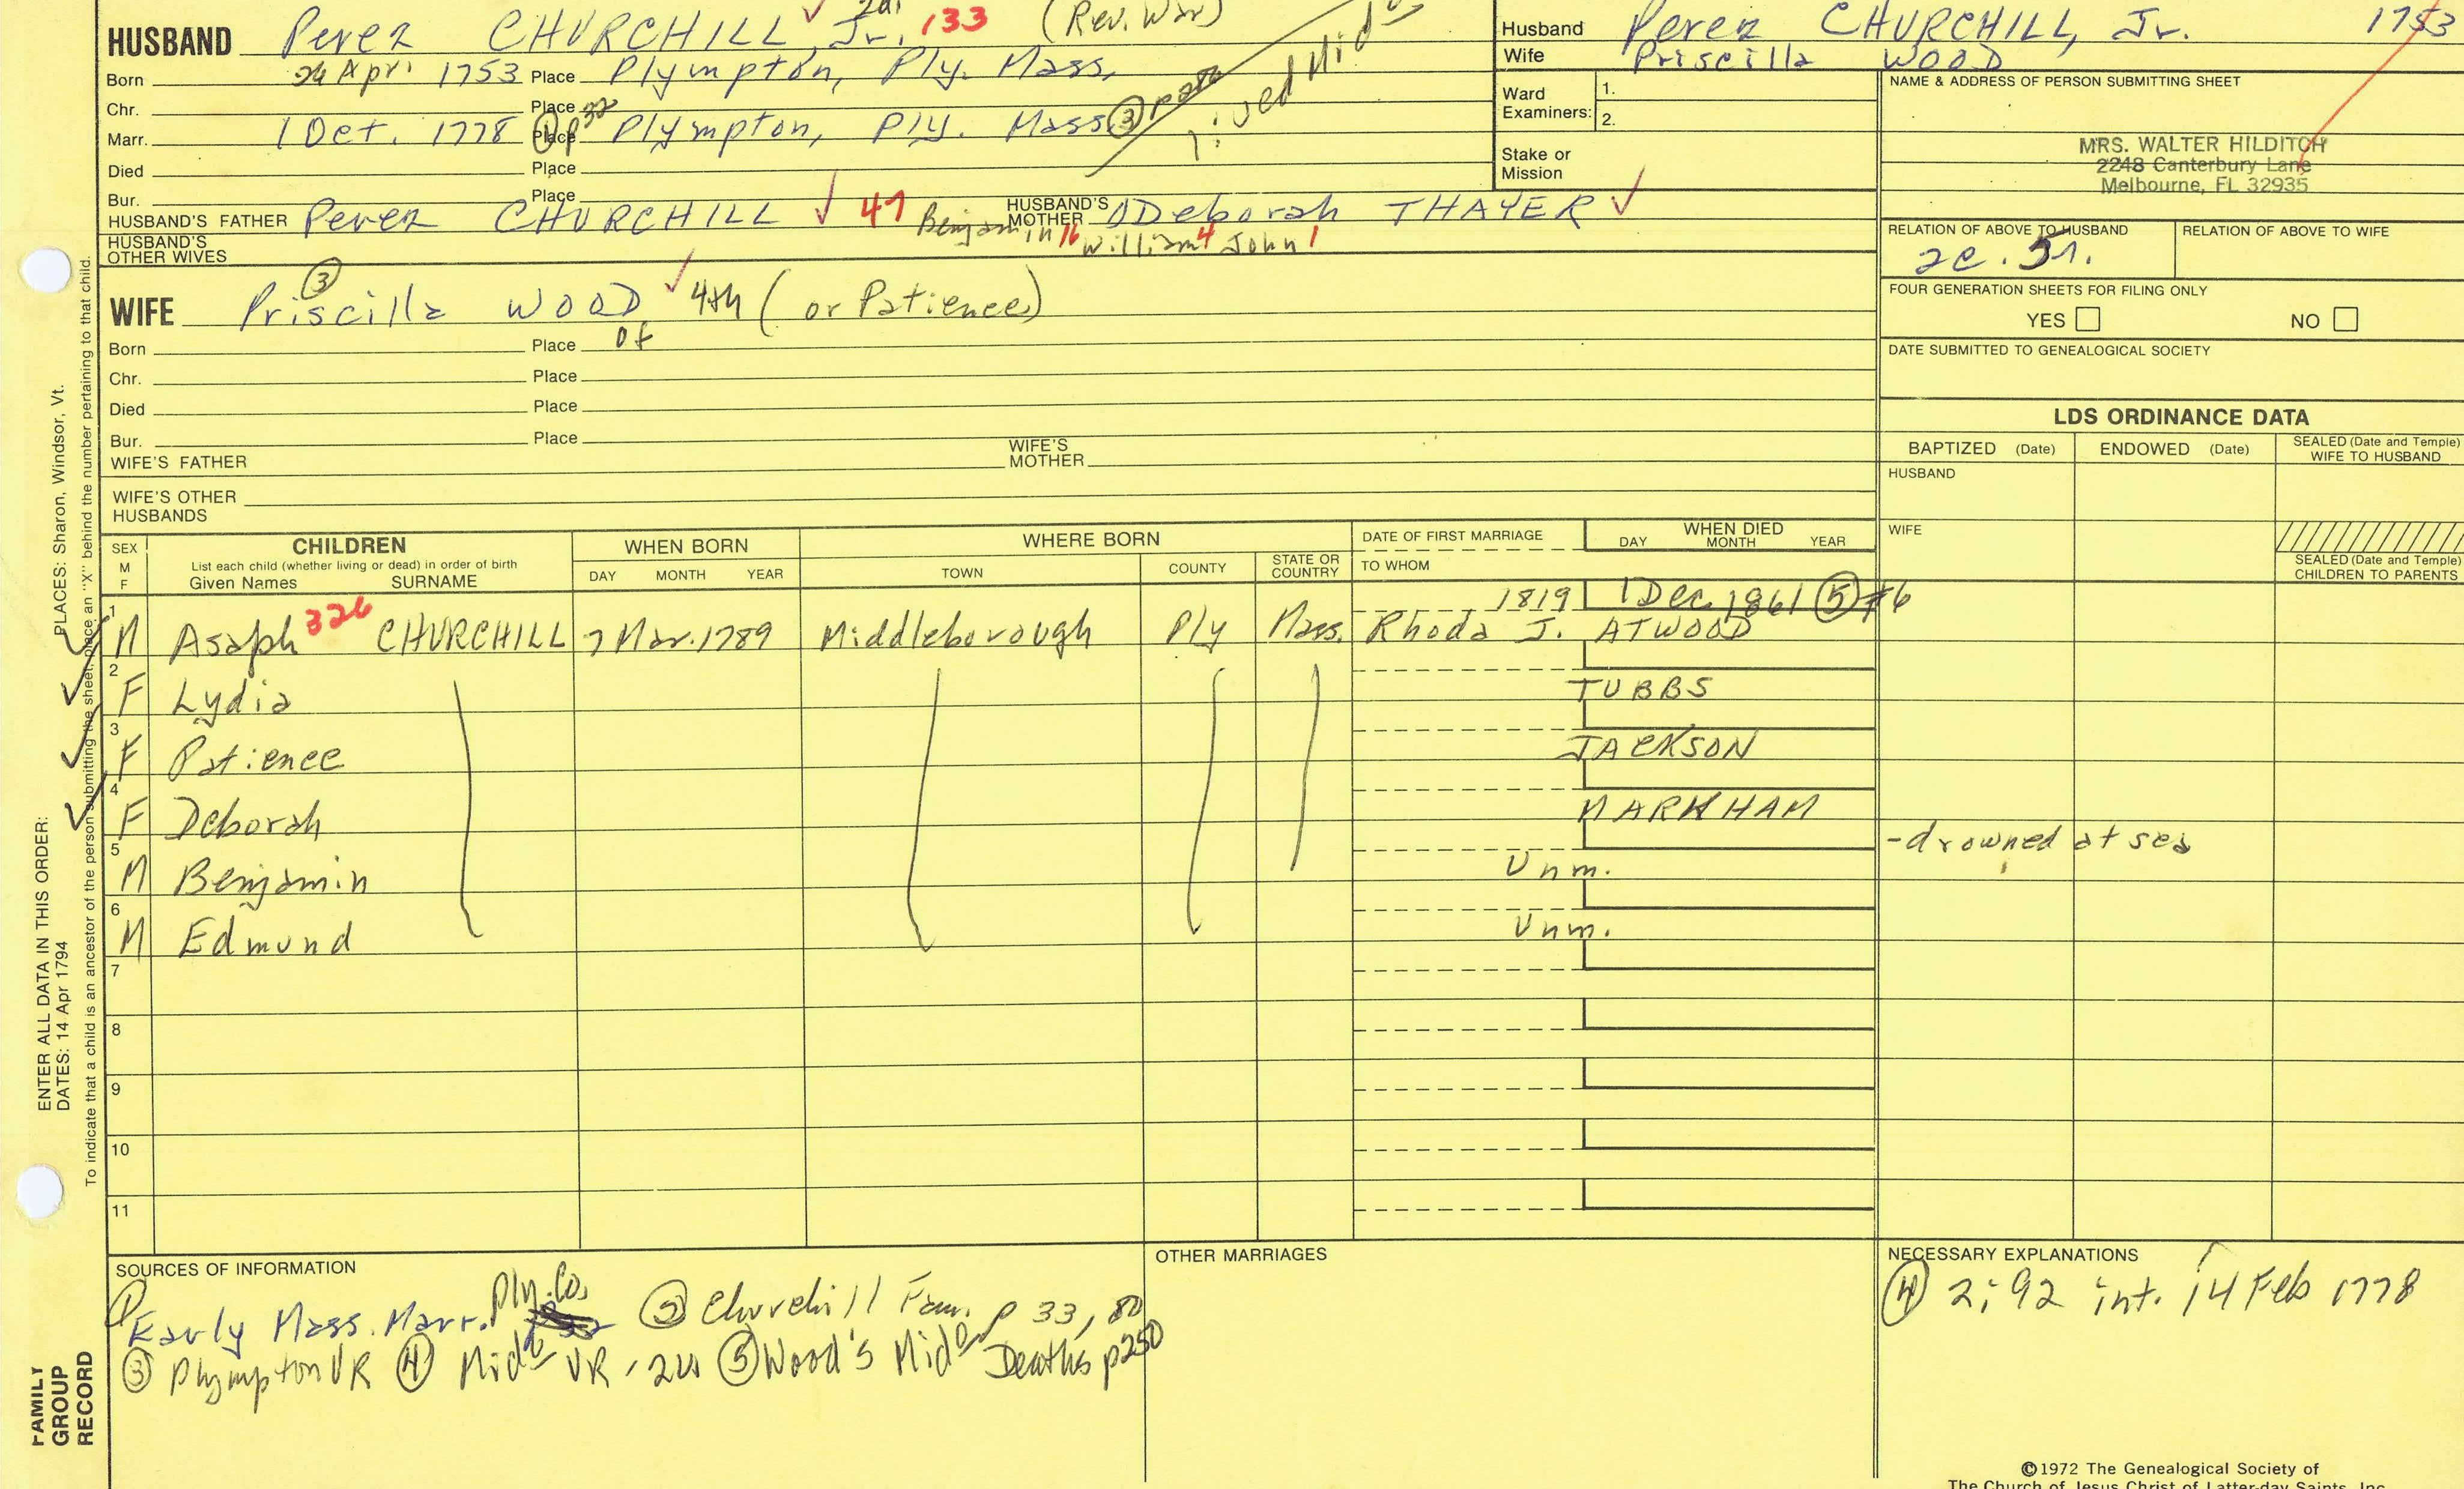 HUSBAND Perez CHURCHILL, Jr. 133 (Rev. War)
Born 24 Apr. 1753 Place Plympton, Ply. Mass.
Chr. Place
Marr. 1 Oct. 1778 Place Plympton, Ply. Mass. ③
lived Mid
Died Place
Bur. Place
HUSBAND'S FATHER Perez CHURCHILL 47 HUSBAND'S MOTHER Deborah THAYER
Benjamin 16 William 4 John 1
HUSBAND'S OTHER WIVES
Husband Perez CHURCHILL, Jr. 1753
Wife Priscilla WOOD
Ward Examiners: 1.
2.
Stake or Mission
NAME & ADDRESS OF PERSON SUBMITTING SHEET
MRS. WALTER HILDITCH
2248 Canterbury Lane
Melbourne, FL 32935
RELATION OF ABOVE TO HUSBAND RELATION OF ABOVE TO WIFE
2c. 5r.
FOUR GENERATION SHEETS FOR FILING ONLY
YES NO
DATE SUBMITTED TO GENEALOGICAL SOCIETY
③
WIFE Priscilla WOOD 4th (or Patience)
Born Place Of
Chr. Place
Died Place
Bur. Place
WIFE'S FATHER WIFE'S MOTHER
WIFE'S OTHER HUSBANDS
LDS ORDINANCE DATA
BAPTIZED (Date) ENDOWED (Date) SEALED (Date and Temple) WIFE TO HUSBAND
HUSBAND
WIFE
SEALED (Date and Temple) CHILDREN TO PARENTS
SEX M F CHILDREN List each child (whether living or dead) in order of birth Given Names SURNAME
WHEN BORN DAY MONTH YEAR
WHERE BORN TOWN COUNTY STATE OR COUNTRY
DATE OF FIRST MARRIAGE TO WHOM
WHEN DIED DAY MONTH YEAR
1819 1 Dec. 1861 ⑤ #6
1 M Asaph 326 CHURCHILL 7 Mar. 1789 Middleborough Ply Mass. Rhoda J. ATWOOD
2 F Lydia TUBBS
3 F Patience JACKSON
4 F Deborah MARKHAM
5 M Benjamin Unm. -drowned at sea
6 M Edmund Unm.
7
8
9
10
11
SOURCES OF INFORMATION
① Early Mass. Marr. Ply. Co. ② Churchill Fam. p 33, 80
③ Plympton VR ④ Mid VR ⑤ Wood's Mid Deaths p250
OTHER MARRIAGES
NECESSARY EXPLANATIONS
④ 2:92 int. 14 Feb 1778
©1972 The Genealogical Society of
The Church of Jesus Christ of Latter-day Saints, Inc.
ENTER ALL DATA IN THIS ORDER:
DATES: 14 Apr 1794 PLACES: Sharon, Windsor, Vt.
To indicate that a child is an ancestor of the person submitting the sheet, place an "X" behind the number pertaining to that child.
FAMILY
GROUP
RECORD